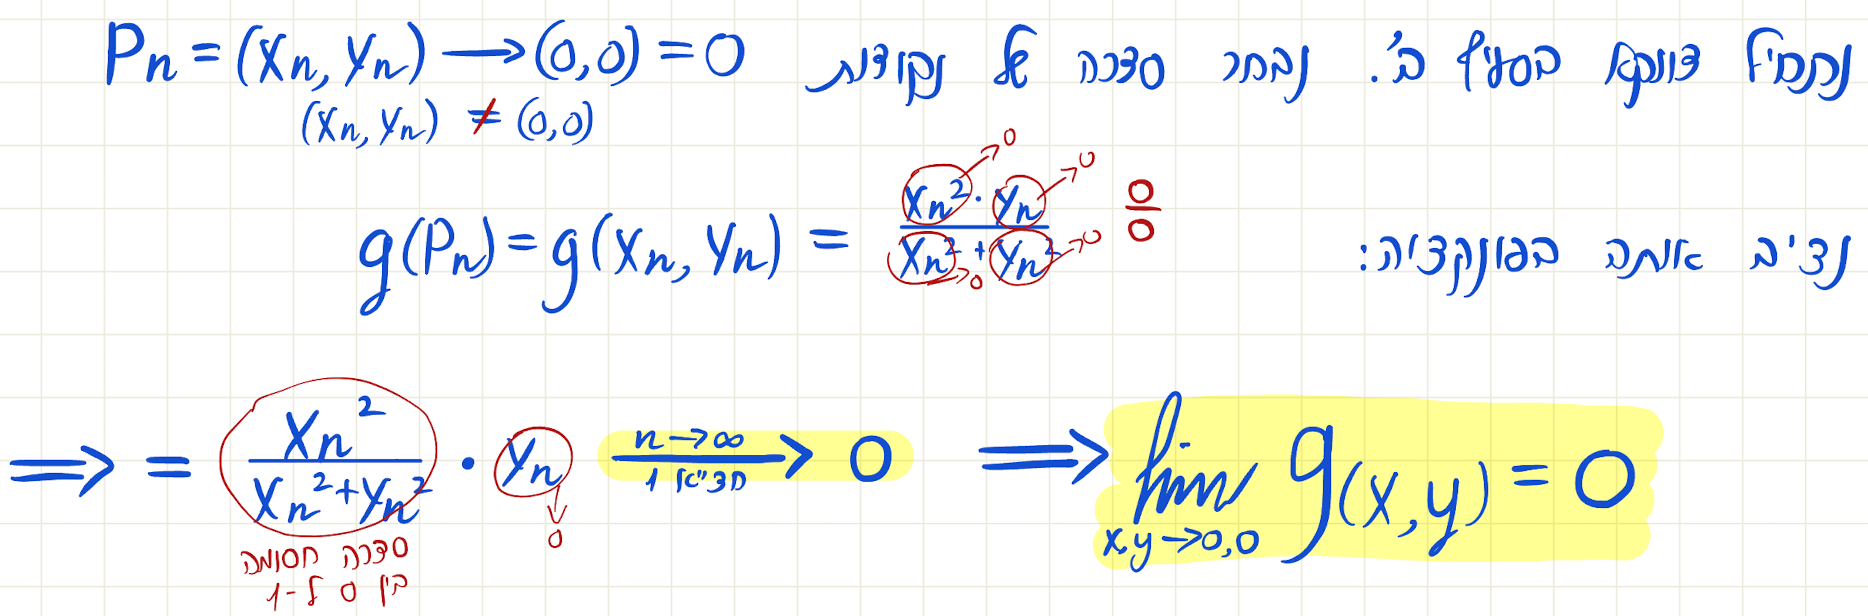 נתחיל דווקא בסעיף ב'. נבחר סדרה של נקודות Pn = (xn, yn) → (0,0) = 0
(xn, yn) ≠ (0,0)
נציב אותה בפונקציה:
g(Pn) = g(xn, yn) = (xn² · yn) / (xn² + yn²) 0/0
→0 →0
→0 →0
⟹ = xn² / (xn² + yn²) · yn n→∞ → 0 ⟹ lim g(x,y) = 0
חדו"א 1
x,y→0,0
↓ 0
סדרה חסומה
בין 0 ל-1